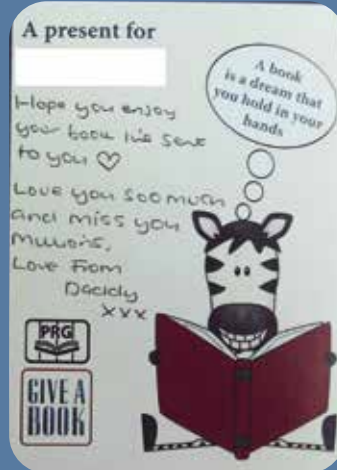 A present for
A book
is a dream that
you hold in your
hands
Hope you enjoy
your book I've sent
to you ♡
Love you soo much
and miss you
Millions,
Love From
Daddy
xxx
PRG
GIVE A
BOOK